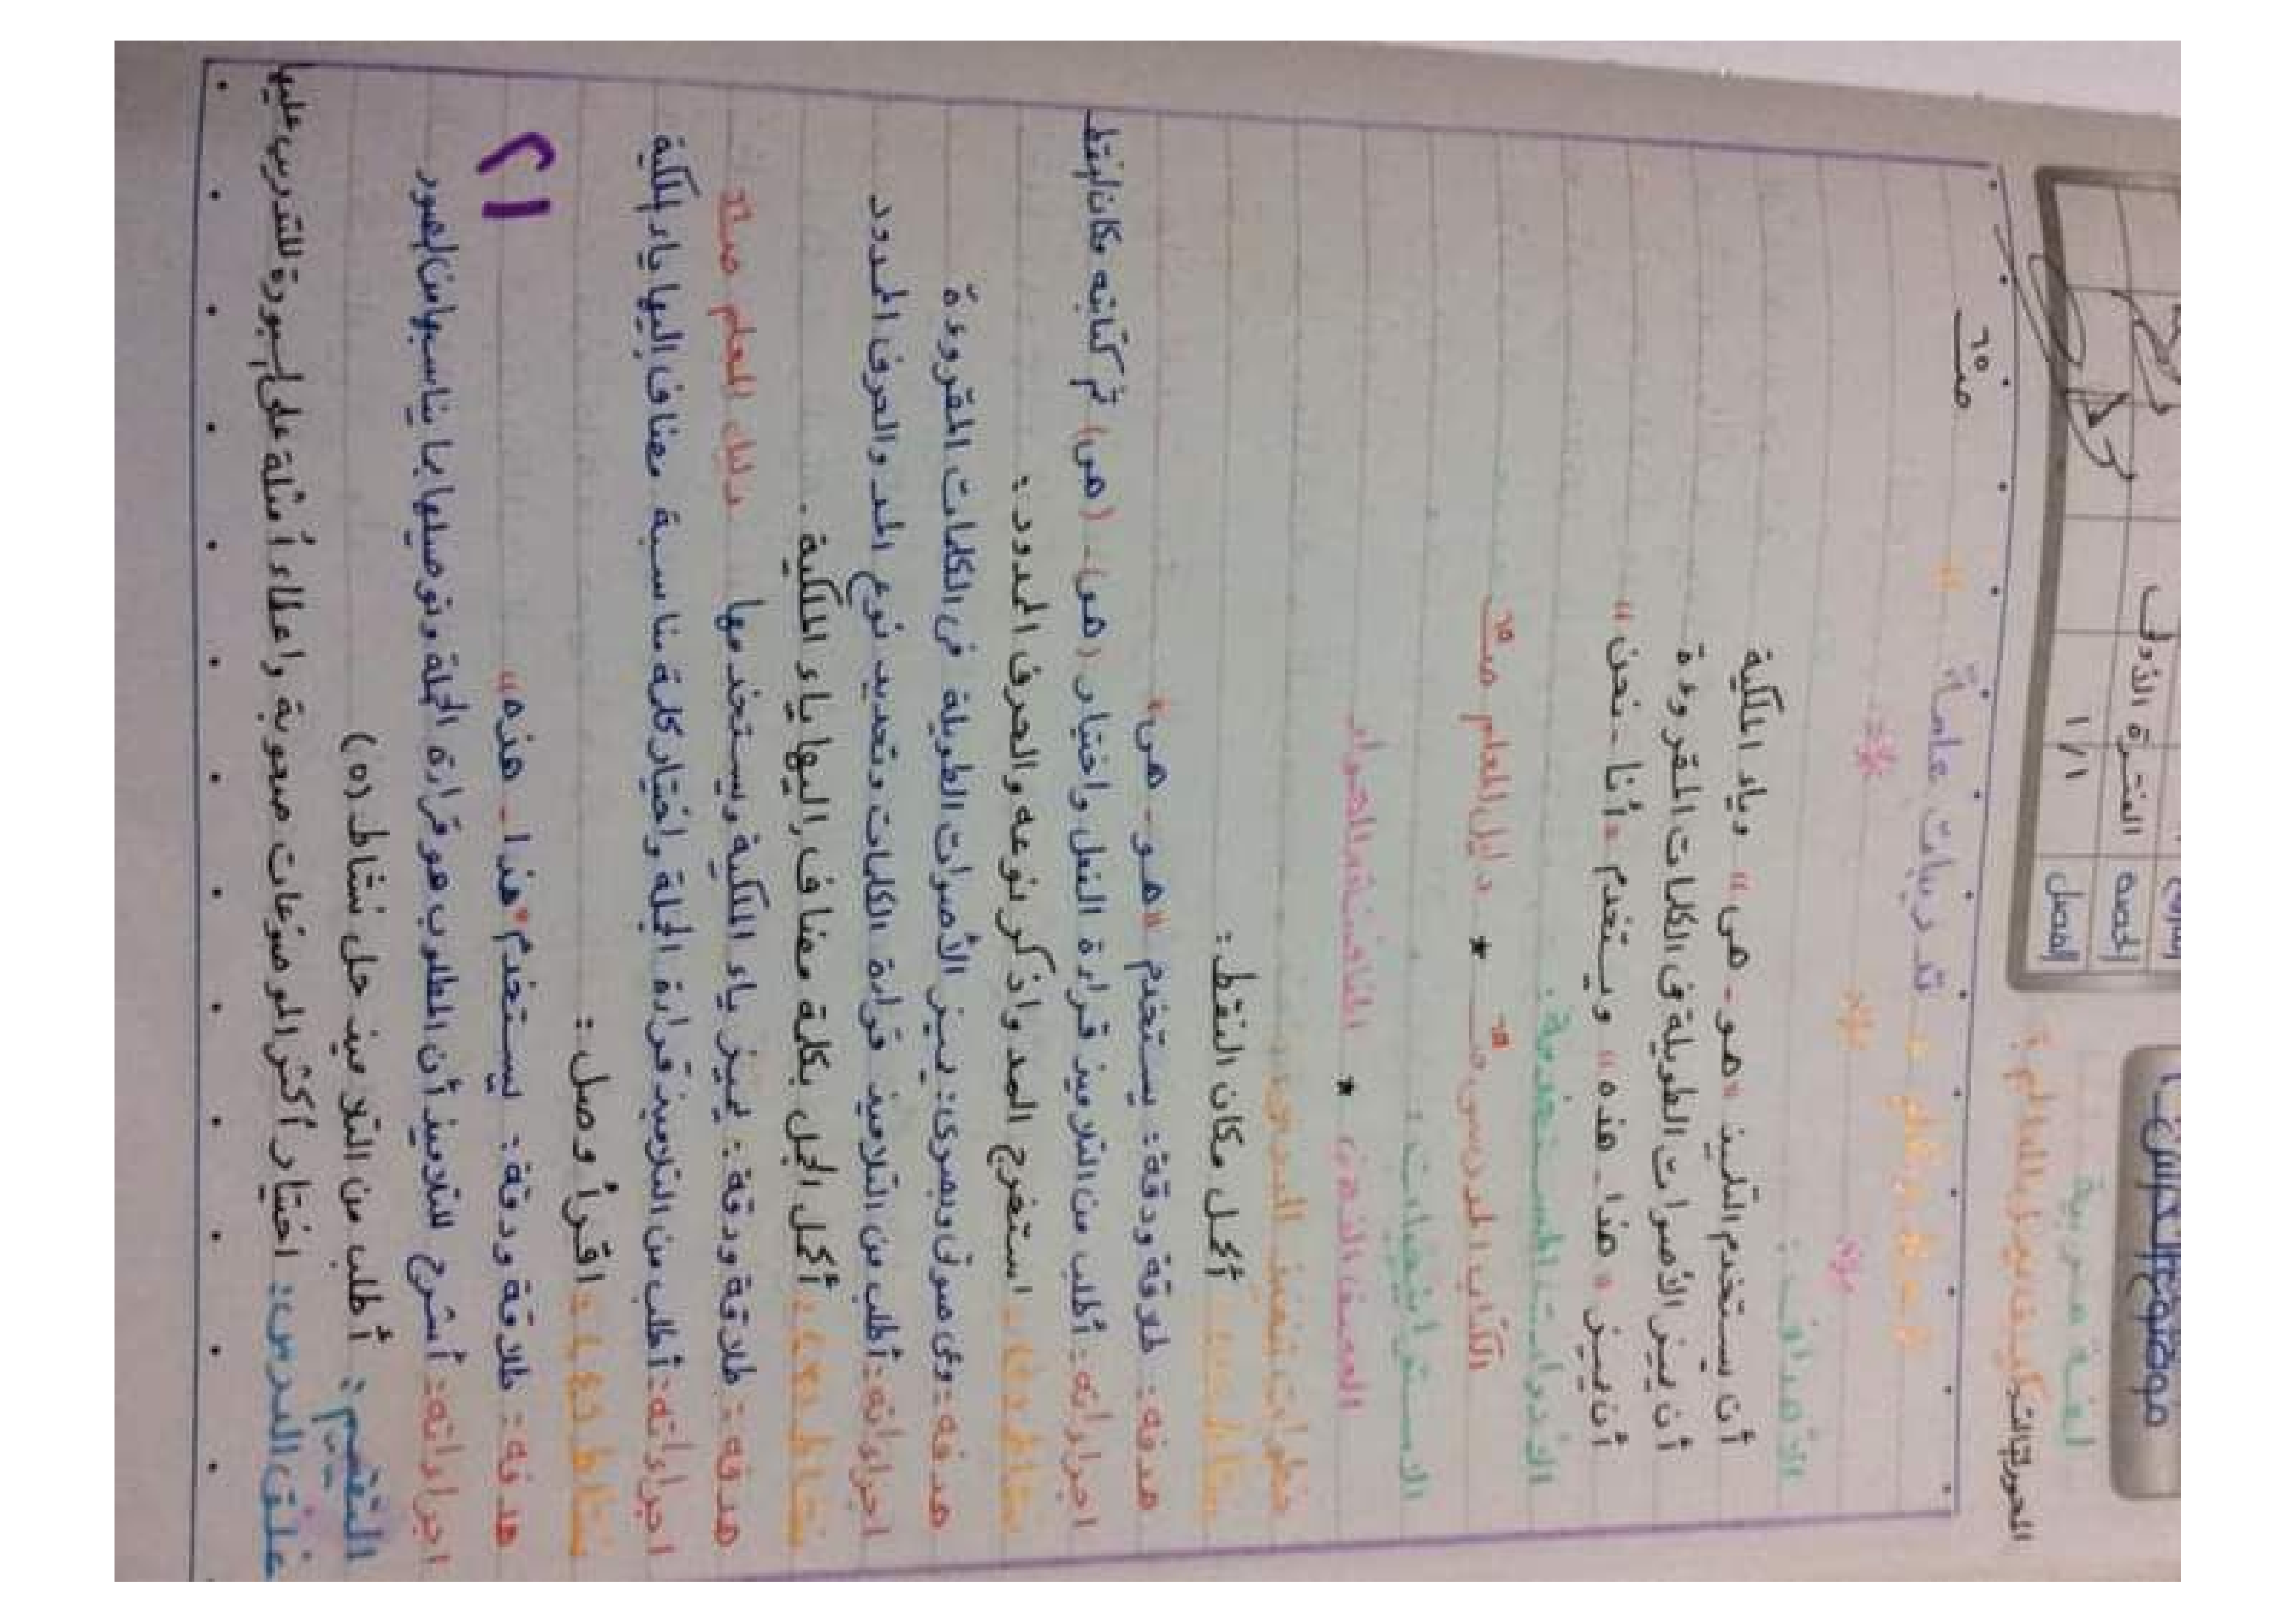 موضوع الدرس
التاريخ
الحصة الفترة الأولى
الفصل ١/١
لغة عربية
المحور الثاني: كيف يعمل العالم؟
تدريبات عامة صـ ٦٥
الأهداف:
أن يستخدم التلميذ "هو - هي" وياء الملكية
أن يميز الأصوات الطويلة فى الكلمات المقروءة
أن يميز "هذا - هذه" ويستخدم "أنا - نحن"
الأدوات المستخدمة:
الكتاب المدرسى صـ ٦٥ * دليل المعلم صـ
الاستراتيجيات:
العصف الذهنى * المناقشة والحوار
خطوات تنفيذ الدرس:
نشاط (١): أكمل مكان النقط:
هدفه: طلاقة ودقة: يستخدم "هو - هي"
اجراءاته: أطلب من التلاميذ قراءة الفعل واختيار (هو) - (هي) ثم كتابته مكان النقط
نشاط (٢): استخرج المد واذكر نوعه والحرف الممدود:
هدفه: وعى صوتى وبصرى: يميز الأصوات الطويلة فى الكلمات المقروءة
اجراءاته: أطلب من التلاميذ قراءة الكلمات وتحديد نوع المد والحرف الممدود
نشاط (٣): أكمل الجمل بكلمة مضاف إليها ياء الملكية.
هدفه: طلاقة ودقة: يميز ياء الملكية ويستخدمها دليل المعلم صـ
اجراءاته: أطلب من التلاميذ قراءة الجملة واختيار كلمة مناسبة مضاف إليها ياء الملكية
نشاط (٤): اقرأ وصل:
هدفه: طلاقة ودقة: يستخدم "هذا - هذه"
٢١
اجراءاته: أشرح للتلاميذ أن المطلوب هو قراءة الجملة وتوصيلها بما يناسبها من الصور
التقييم: أطلب من التلاميذ حل نشاط (٥)
غلق الدرس: اختيار أكثر الموضوعات صعوبة واعطاء أمثلة على السبورة للتدريب عليها